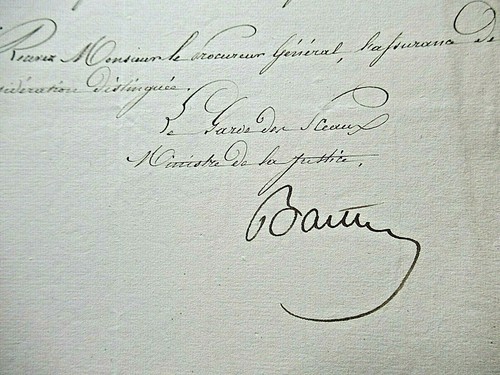 Recevez Monsieur le Procureur Général, l'assurance de
sidération distinguée.
Le Garde des Sceaux
Ministre de la Justice.
Barthe